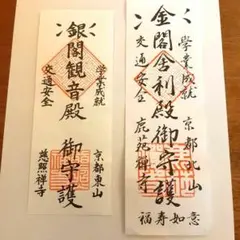 學業成就
京都北山
金閣舎利殿御守護
交通安全
鹿苑禅寺
福寿如意
學業成就
京都東山
銀閣観音殿
御守護
交通安全
慈照禅寺